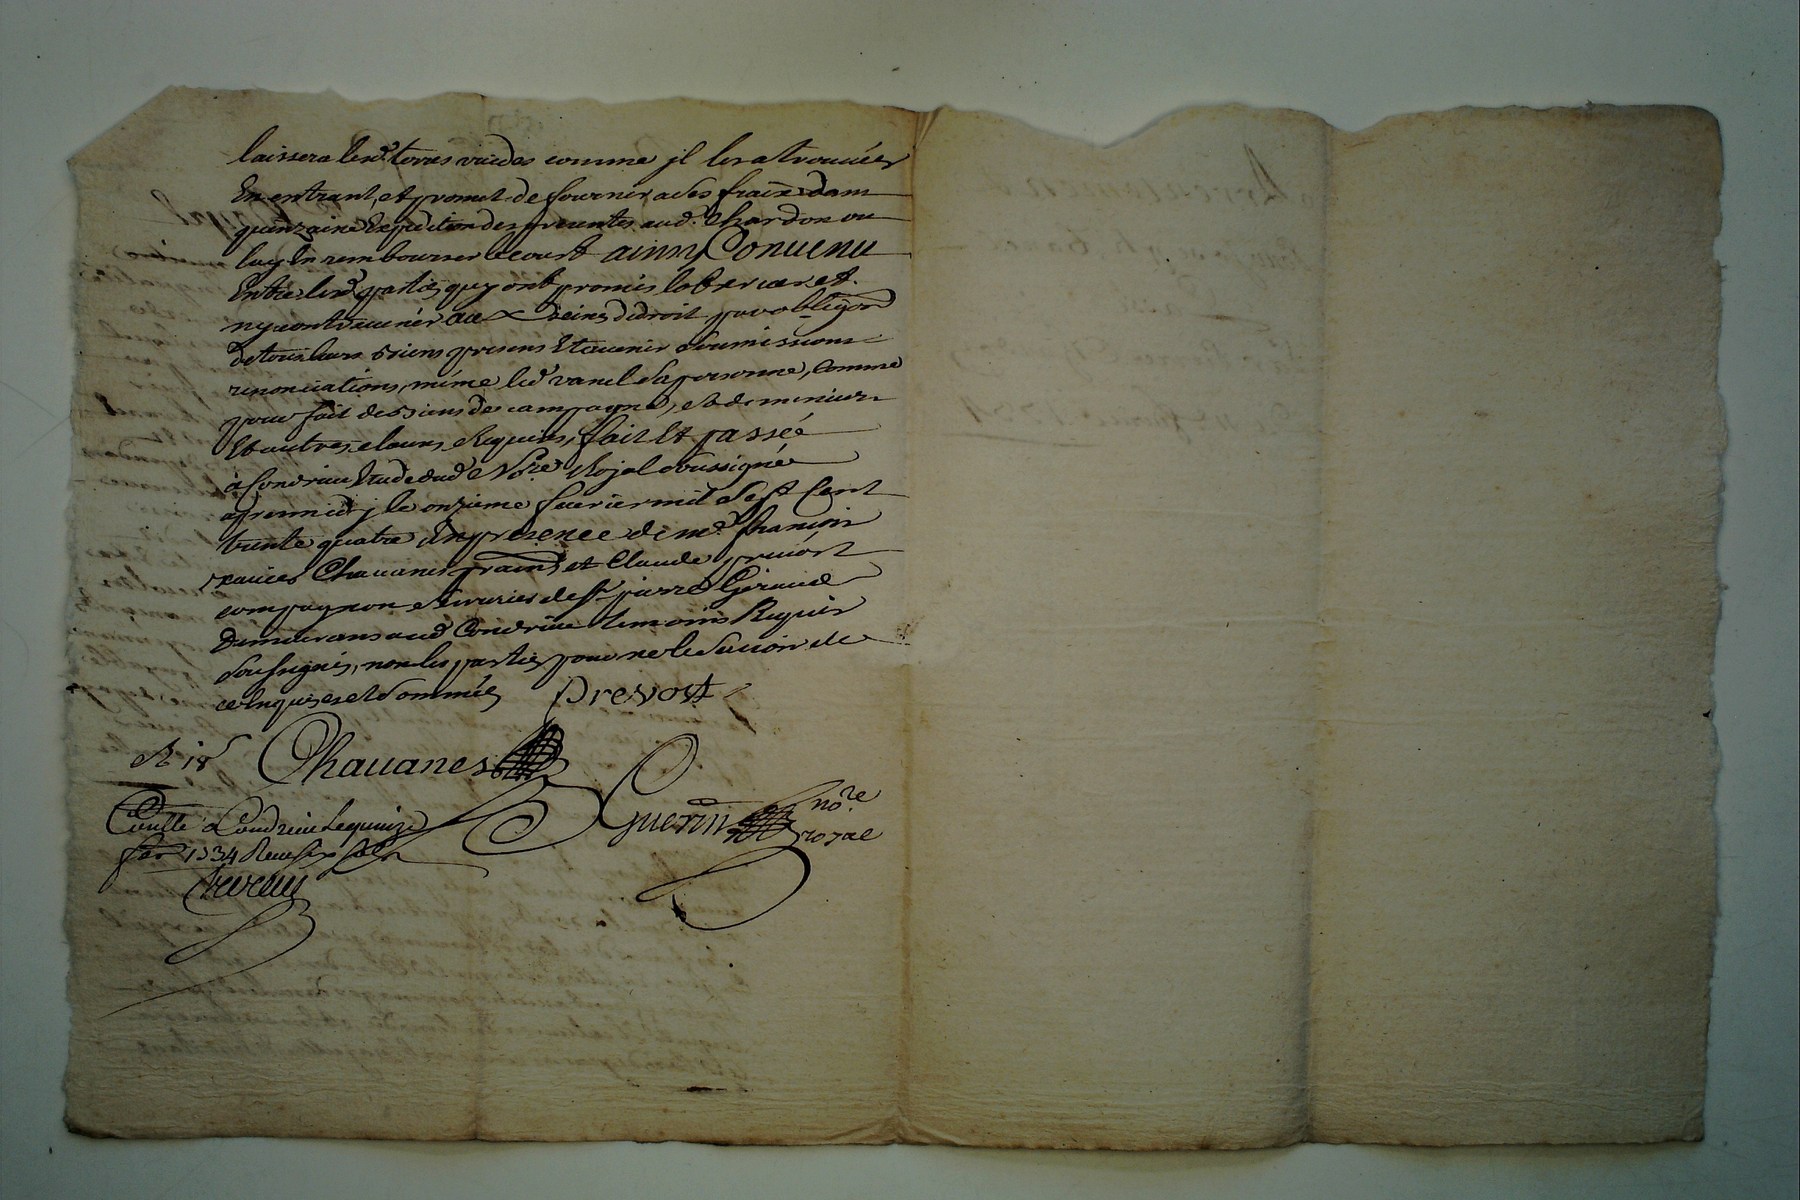 laissera lesd. terres vuides comme jl les a trouuées
En entrant, et promet de fournir a ses frais dans
quinzaine Expedition des presentes aud. Chardon ou
luy En rembourser le coust ainsy Conuenu
Entre lesd. parties quy ont promis lobseruer et
ny contreuenir aux peines de droit par obligõn
de tous leurs biens presens Et auenir soumissions
renonciations, même led. vanel sa personne, Comme
pour fait des siens de campagne, et
Et autres clauses Requises, fait Et passé
à Condrieu Etude dud. No.re Royal soussigné
apres midj le onzieme feurier mil sept Cent
trente quatre En presence de m.e françois
xauier Chauanes prãen et Claude preuost
compagnon de st pierre Giraud
Demeurans aud. Condrieu temoins Requis
soussignés, non les parties pour ne le sauoir de
ce Enquises et sommées Prevost
R 18 s Chauanes
Guerin no.re royal
Conllé a Condrieu le quinze
feu. 1734 Receu six sols